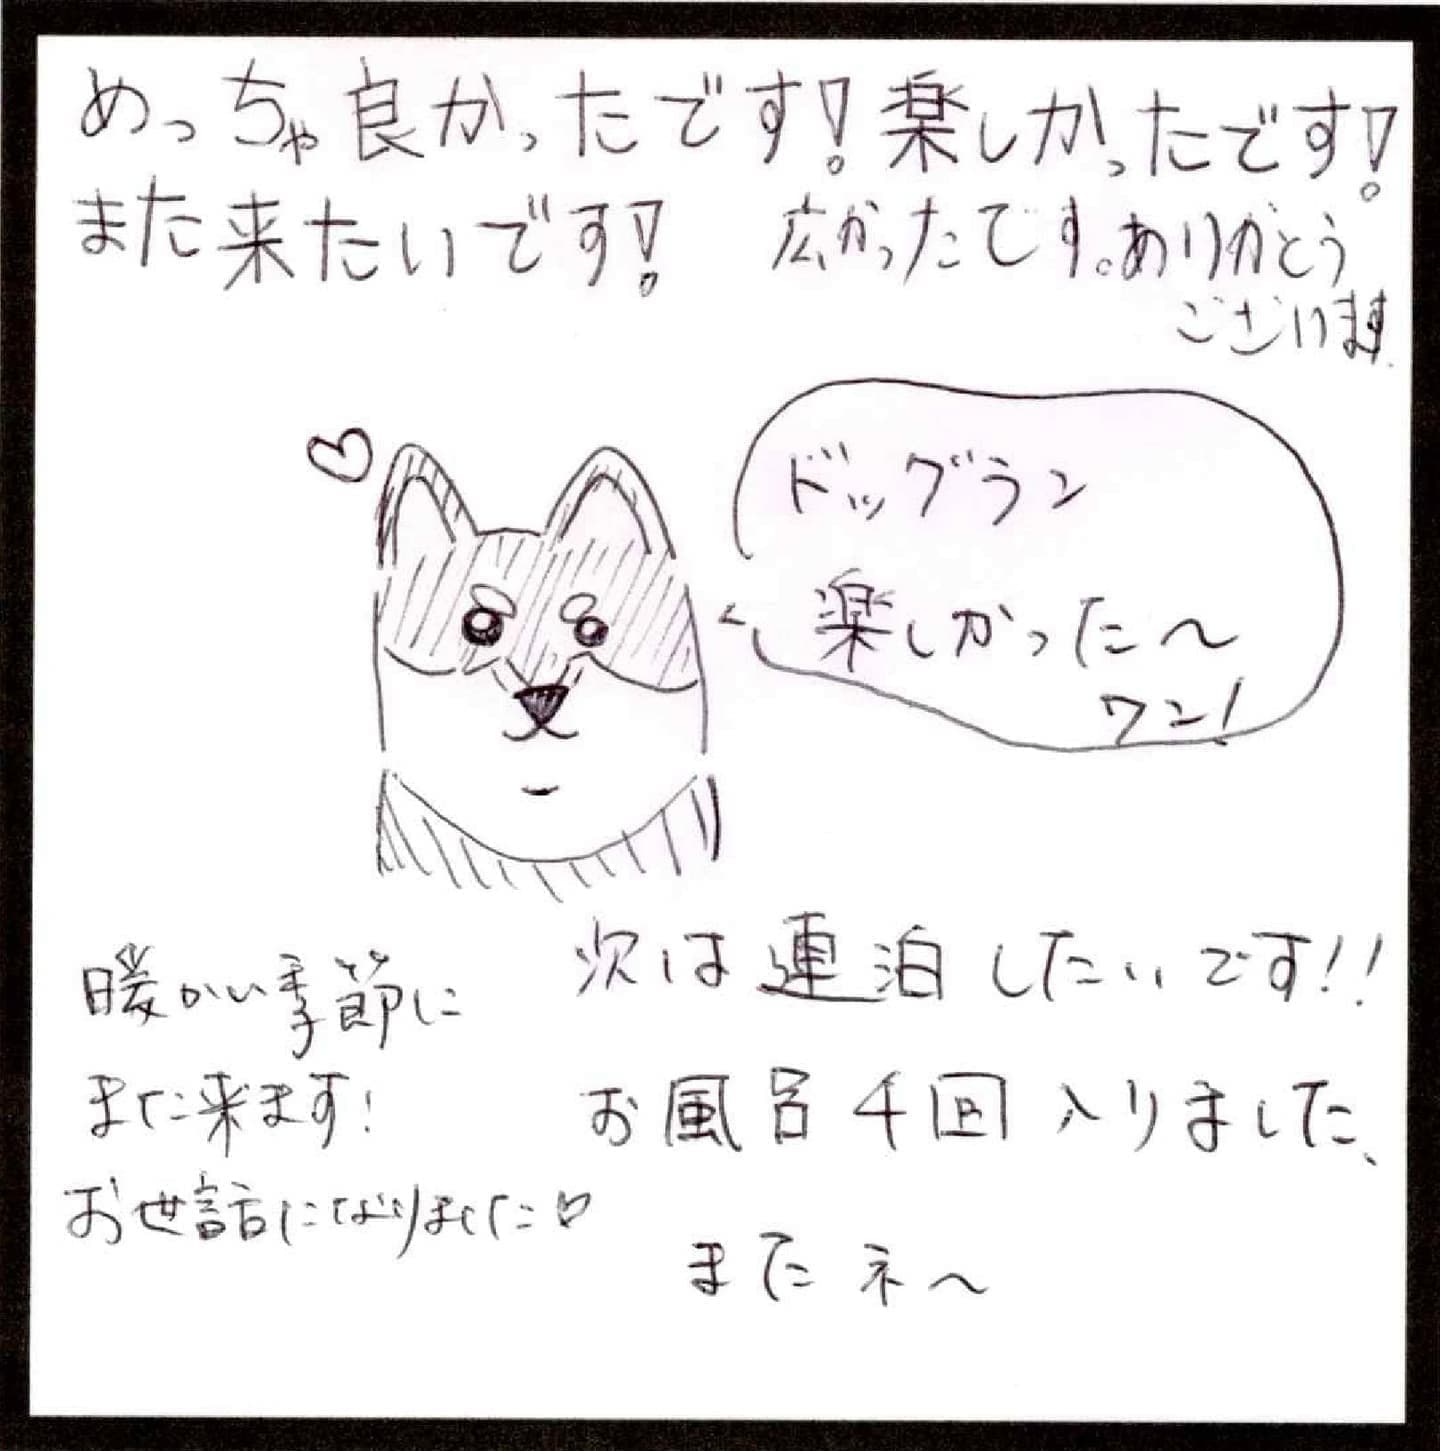 めっちゃ良かったです！楽しかったです！
また来たいです！
広かったです。ありがとう
ございます
ドッグラン
楽しかった～
ワン！
暖かい季節に
また来ます！
お世話になりました♡
次は連泊したいです！！
お風呂4回入りました、
またネ～